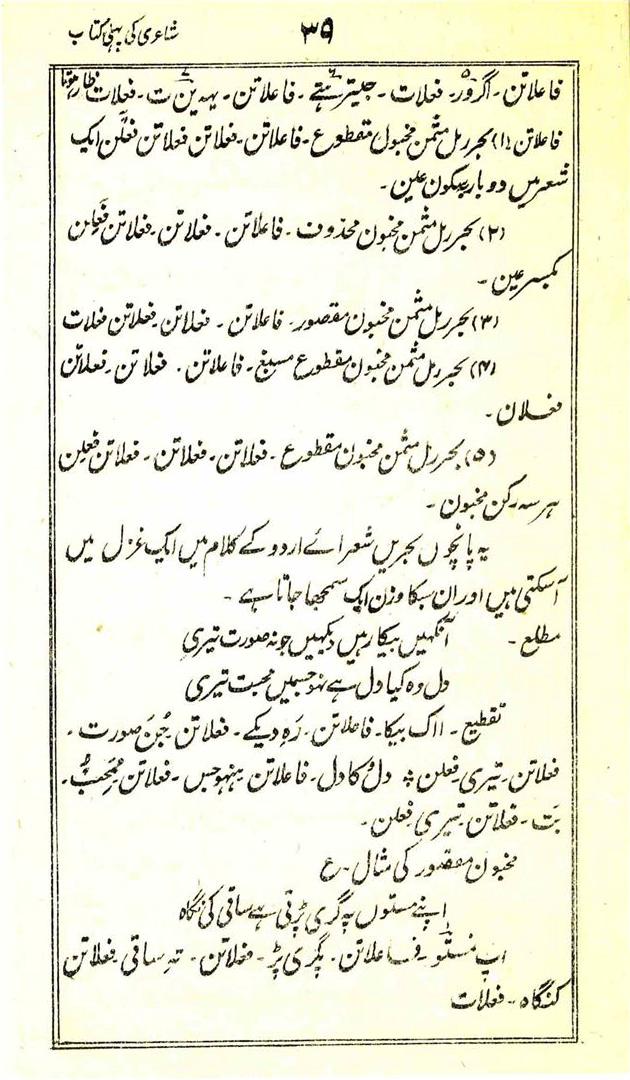 شاعری کی پہلی کتاب
۳۹
فاعلاتن ۔ اگرور ۔ فعلات ۔ جیتے ۔ فاعلاتن ۔ یہدین ت ۔ فعلات
فاعلاتن (۱) بحر رمل مثمن مخبول مقطوع ۔ فاعلاتن ۔ فعلاتن فعلاتن فعلن ایک
شعر میں دو بار بسکون عین ۔
(۲) بحر رمل مثمن مخبون محذوف ۔ فاعلاتن ۔ فعلاتن ۔ فعلاتن فعلن
بکسر عین ۔
(۳) بحر رمل مثمن مخبون مقصور ۔ فاعلاتن ۔ فعلاتن ۔ فعلاتن فعلات
(۴) بحر رمل مثمن مخبون مقطوع مسبغ ۔ فاعلاتن ۔ فعلاتن ۔ فعلاتن
فعلان ۔
(۵) بحر رمل مثمن مخبون مقطوع ۔ فعلاتن ۔ فعلاتن ۔ فعلاتن فعلن
ہر سہ رکن مخبون ۔
یہ پانچوں بحریں شعرائے اردو کے کلام میں ایک غزل میں
آسکتی ہیں اور ان سبکا وزن ایک سمجھا جاتا ہے ۔
مطلع ۔ آنکھیں بیکار ہیں دیکھیں جو نہ صورت تیری
دل وہ کیا دل ہے نہو جسمیں محبت تیری
تقطیع ۔ ااک بیکا ۔ فاعلاتن ۔ رہ دیکے ۔ فعلاتن جن صورت ۔
فعلاتن ۔ تیری فعلن ؞ دل کا دل ۔ فاعلاتن ہنہو جس ۔ فعلاتن ممحب ۔
بت ۔ فعلاتن ۔ تیری فعلن ۔
مخبون مقصور کی مثال ۔ ع
اپنے مستوں پہ گری پڑتی ہے ساقی کی نگاہ
اپ مستو ۔ فاعلاتن ۔ پگری پڑ ۔ فعلاتن ۔ تہ ساقی ۔ فعلاتن
کنگاہ ۔ فعلات